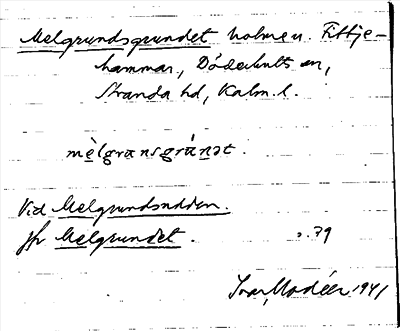 Melgrundsgrundet holme n. Fittje-
hammar, Döderhults sn,
Stranda hd, Kalm. l.
mèlgransgránət.
Vid Melgrundsudden.
Jfr Melgrundet. s. 79
Ivar Modéer 1941